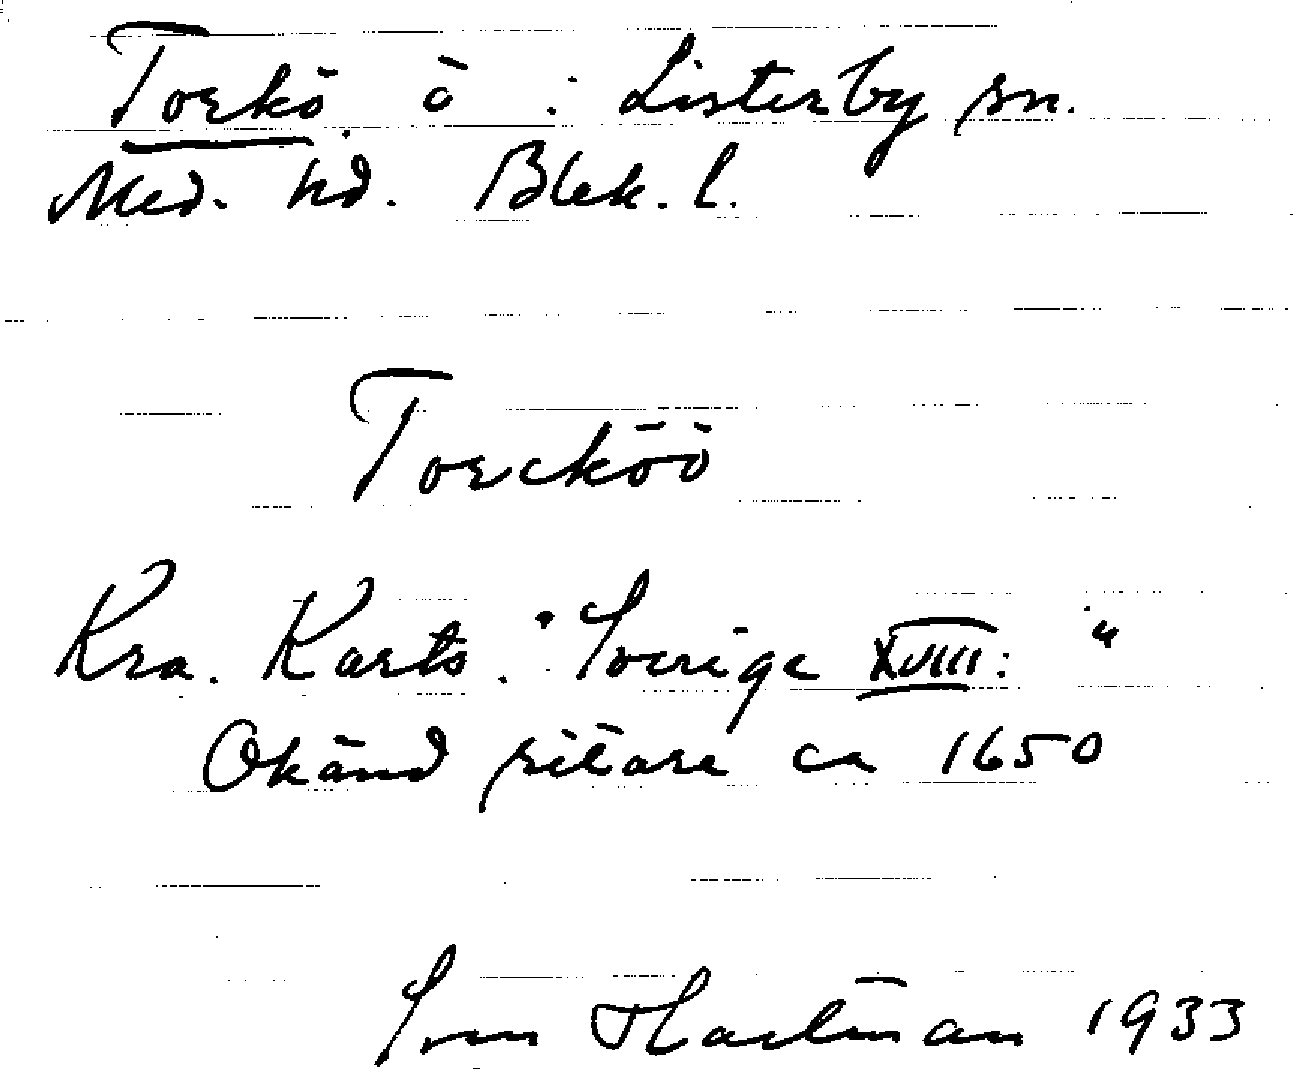 Torkö. ö i Listerby sn.
Med. hd. Blek. l.
Torcköö
Kra. Karts. "Sverige XVIII: "
Okänd ritare ca 1650
Sven Hartman 1933